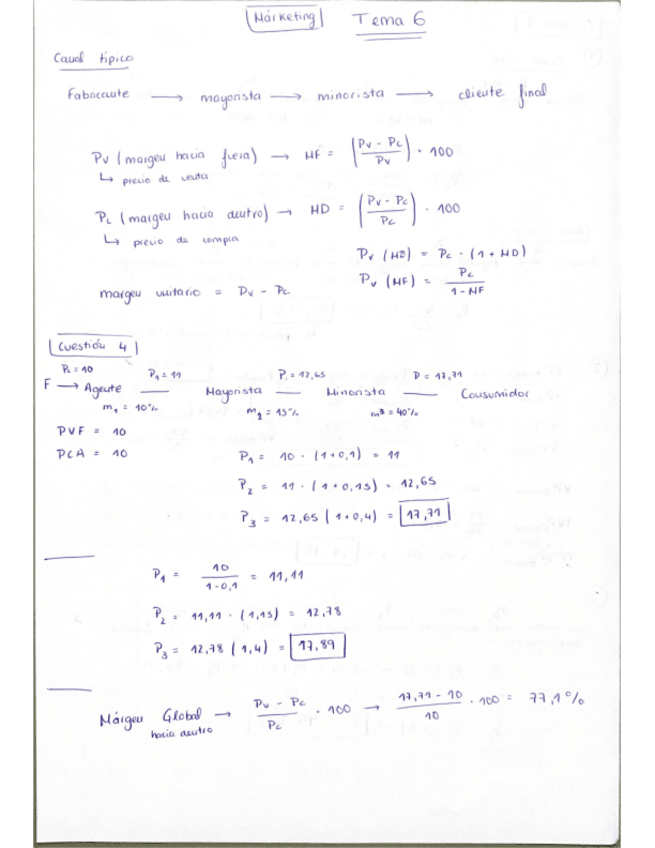 Márketing Tema 6
Canal típico
Fabricante → mayorista → minorista → cliente final
Pv (margen hacia fuera) → MF = (Pv - Pc / Pv) · 100
↳ precio de venta
Pc (margen hacia dentro) → MD = (Pv - Pc / Pc) · 100
↳ precio de compra
Pv (MD) = Pc · (1 + MD)
Pv (MF) = Pc / 1 - MF
margen unitario = Pv - Pc
Cuestión 4
P₀ = 10 P₁ = 11 P. = 12,65 P = 17,71
F → Agente — Mayorista — Minorista — Consumidor
m₁ = 10% m₂ = 15% m³ = 40%
PVF = 10
PCA = 10
P₁ = 10 · (1+0,1) = 11
P₂ = 11 · (1+0,15) = 12,65
P₃ = 12,65 (1+0,4) = 17,71
P₁ = 10 / 1-0,1 = 11,11
P₂ = 11,11 · (1,15) = 12,78
P₃ = 12,78 (1,4) = 17,89
Márgen Global → Pv - Pc / Pc · 100 → 17,71 - 10 / 10 · 100 = 77,1%
hacia dentro